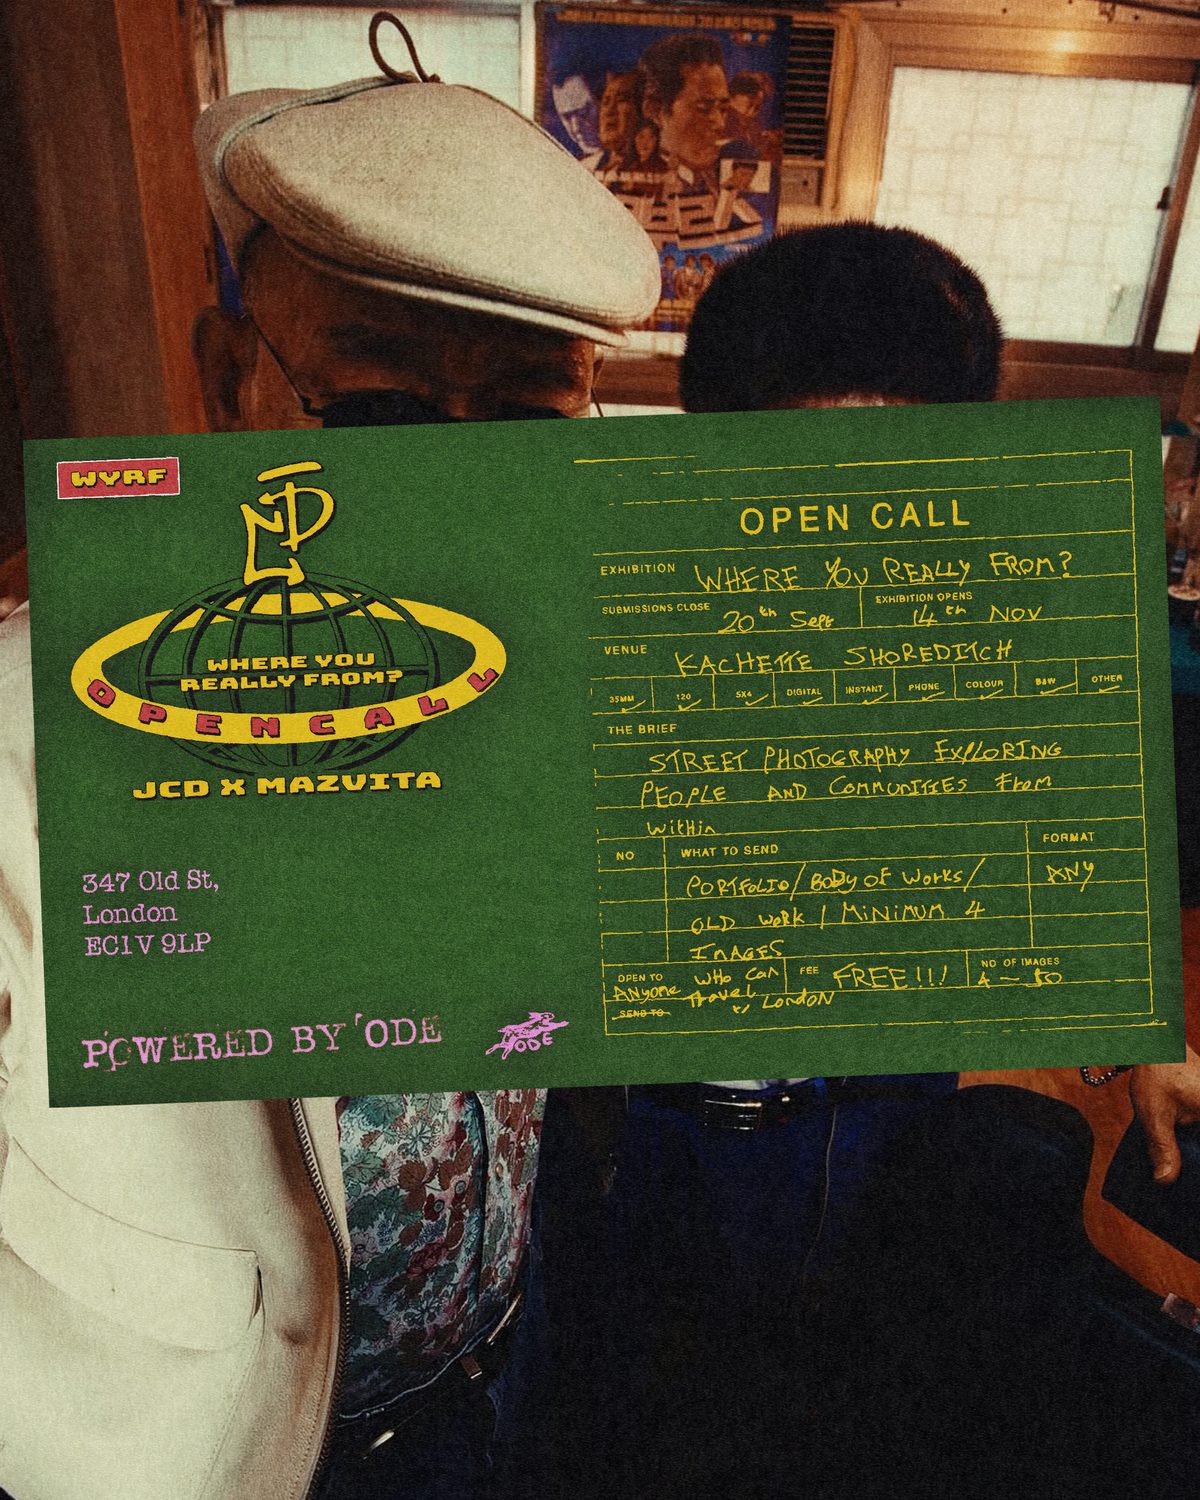 WYRF
JCD
WHERE YOU
REALLY FROM?
OPEN CALL
JCD X MAZVITA
347 Old St,
London
EC1V 9LP
POWERED BY 'ODE
ODE
OPEN CALL
EXHIBITION WHERE YOU REALLY FROM?
SUBMISSIONS CLOSE 20th Sept EXHIBITION OPENS 14th NOV
VENUE KACHETTE SHOREDITCH
35MM 120 5X4 DIGITAL INSTANT PHONE COLOUR B&W OTHER
THE BRIEF
STREET PHOTOGRAPHY EXPLORING
PEOPLE AND COMMUNITIES From
within
NO WHAT TO SEND FORMAT
PORTFOLIO/BODY OF WORKS/ ANY
OLD WORK / MINIMUM 4
IMAGES
OPEN TO Anyone who can travel FEE FREE!!! NO OF IMAGES 4 - 50
SEND TO London